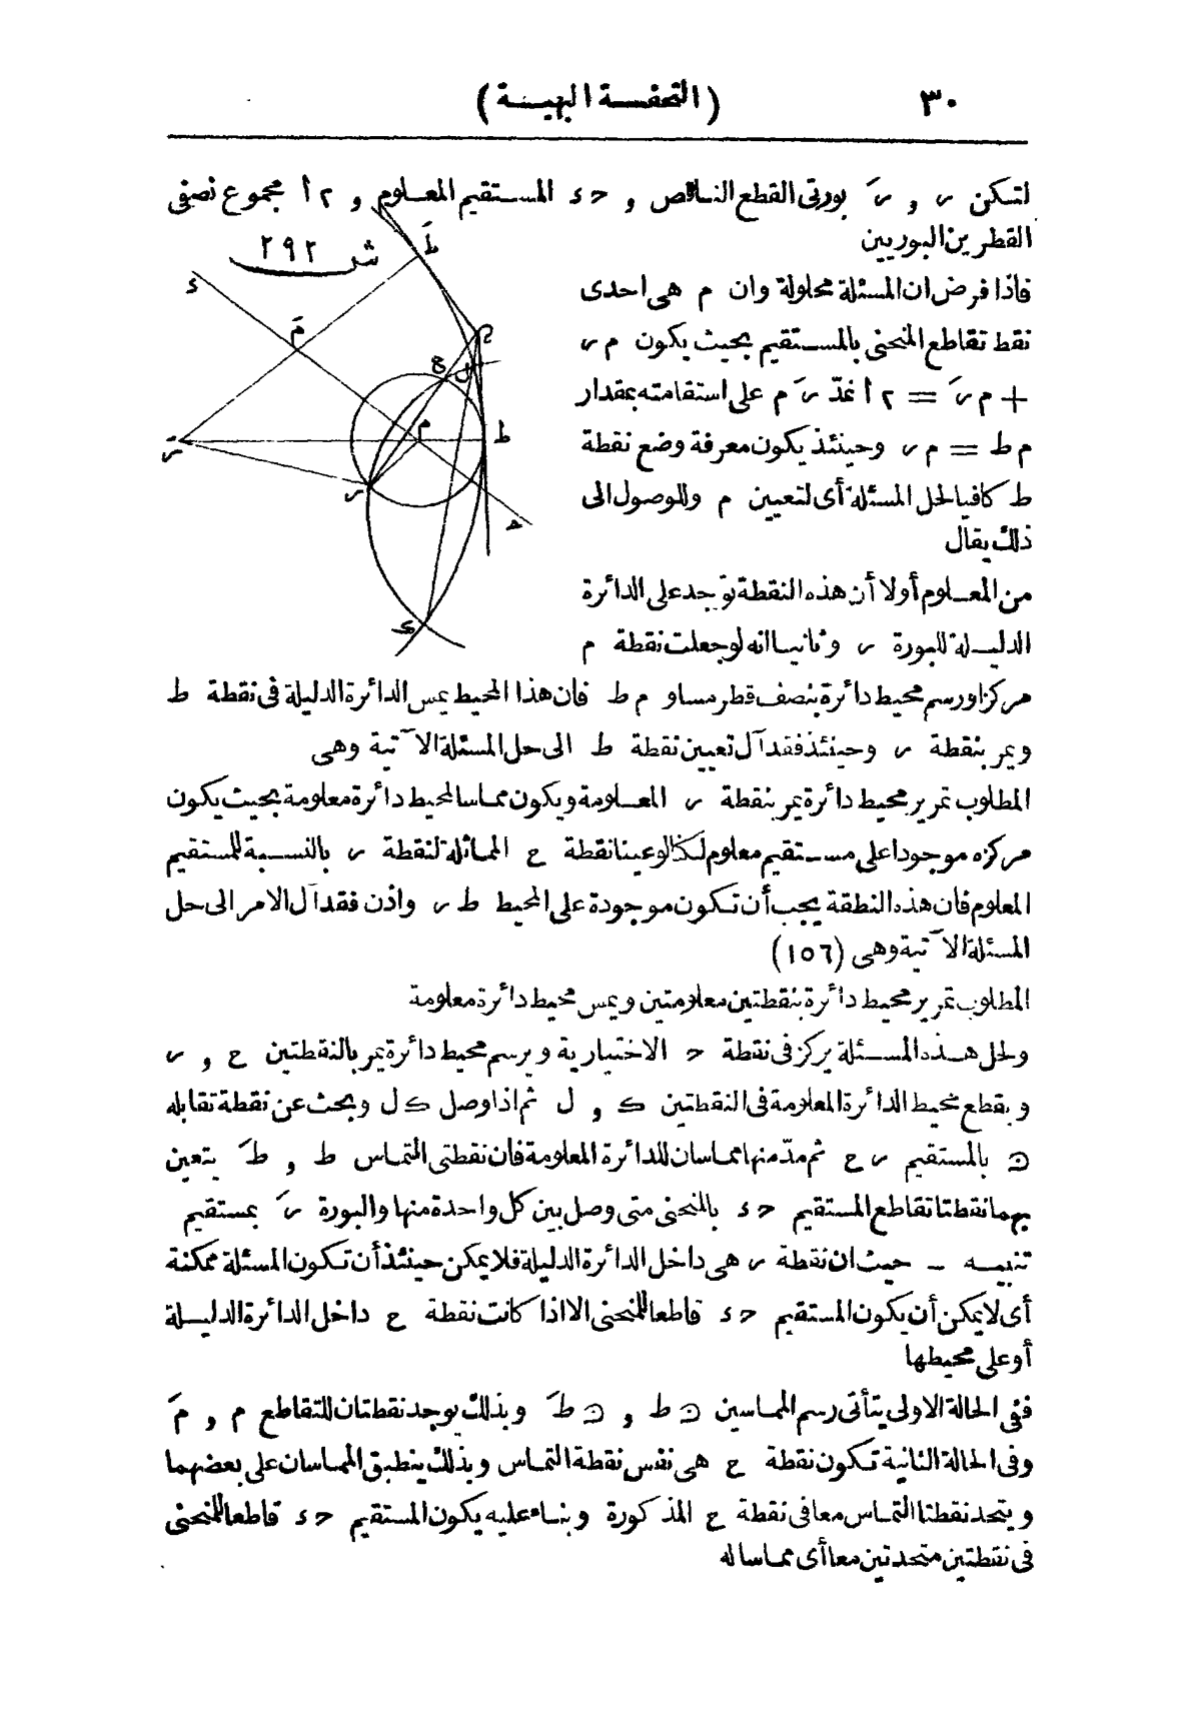 ٣٠ (التحفة البهية)
لتكن ر و رَ بورتى القطع الناقص و حـ ء المستقيم المعلوم و ٢ أ مجموع نصفى
القطرين البوريين
ش ٢٩٢
فاذا فرض ان المسئلة محلولة وان م هى احدى
نقط تقاطع المنحنى بالمستقيم بحيث يكون م ر
+ م رَ = ٢ أ نمدّ رَ م على استقامته بمقدار
م ط = م ر وحينئذ يكون معرفة وضع نقطة
ط كافيا لحل المسئلة أى لتعيين م وللوصول الى
ذلك يقال
من المعلوم أولا أن هذه النقطة توجد على الدائرة
الدليلة للبورة ر وثانيا انه لو جعلت نقطة م
مركزا ورسم محيط دائرة بنصف قطر مساو م ط فان هذا المحيط يمس الدائرة الدليلة فى نقطة ط
ويمر بنقطة ر وحينئذ فقد آل تعيين نقطة ط الى حل المسئلة الآتية وهى
المطلوب تمرير محيط دائرة يمر بنقطة ر المعلومة ويكون مماسا لمحيط دائرة معلومة بحيث يكون
مركزه موجودا على مستقيم معلوم لكن لو عينا نقطة ع المماثلة لنقطة ر بالنسبة للمستقيم
المعلوم فان هذه النطقة يجب أن تكون موجودة على المحيط ط ر واذن فقد آل الامر الى حل
المسئلة الآتية وهى (١٥٦)
المطلوب تمرير محيط دائرة بنقطتين معلومتين ويمس محيط دائرة معلومة
ولحل هذه المسئلة يركز فى نقطة حـ الاختيارية ويرسم محيط دائرة يمر بالنقطتين ع و ر
ويقطع محيط الدائرة المعلومة فى النقطتين ك و ل ثم اذا وصل ك ل وبحث عن نقطة تقابله
ن بالمستقيم ر ع ثم مدّ منها مماسان للدائرة المعلومة فان نقطتى التماس ط و طَ يتعين
بهما نقطتا تقاطع المستقيم حـ ء بالمنحنى متى وصل بين كل واحدة منها والبورة رَ بمستقيم
تنبيه - حيث ان نقطة ر هى داخل الدائرة الدليلة فلا يمكن حينئذ أن تكون المسئلة ممكنة
أى لا يمكن أن يكون المستقيم حـ ء قاطعا للمنحنى الا اذا كانت نقطة ع داخل الدائرة الدليلة
أو على محيطها
ففى الحالة الاولى يتأتى رسم المماسين ن ط و ن طَ وبذلك يوجد نقطتان للتقاطع م و مَ
وفى الحالة الثانية تكون نقطة ع هى نفس نقطة التماس وبذلك ينطبق المماسان على بعضهما
ويتحد نقطتا التماس معا فى نقطة ع المذكورة وبناء عليه يكون المستقيم حـ ء قاطعا للمنحنى
فى نقطتين متحدتين معا أى مماسا له